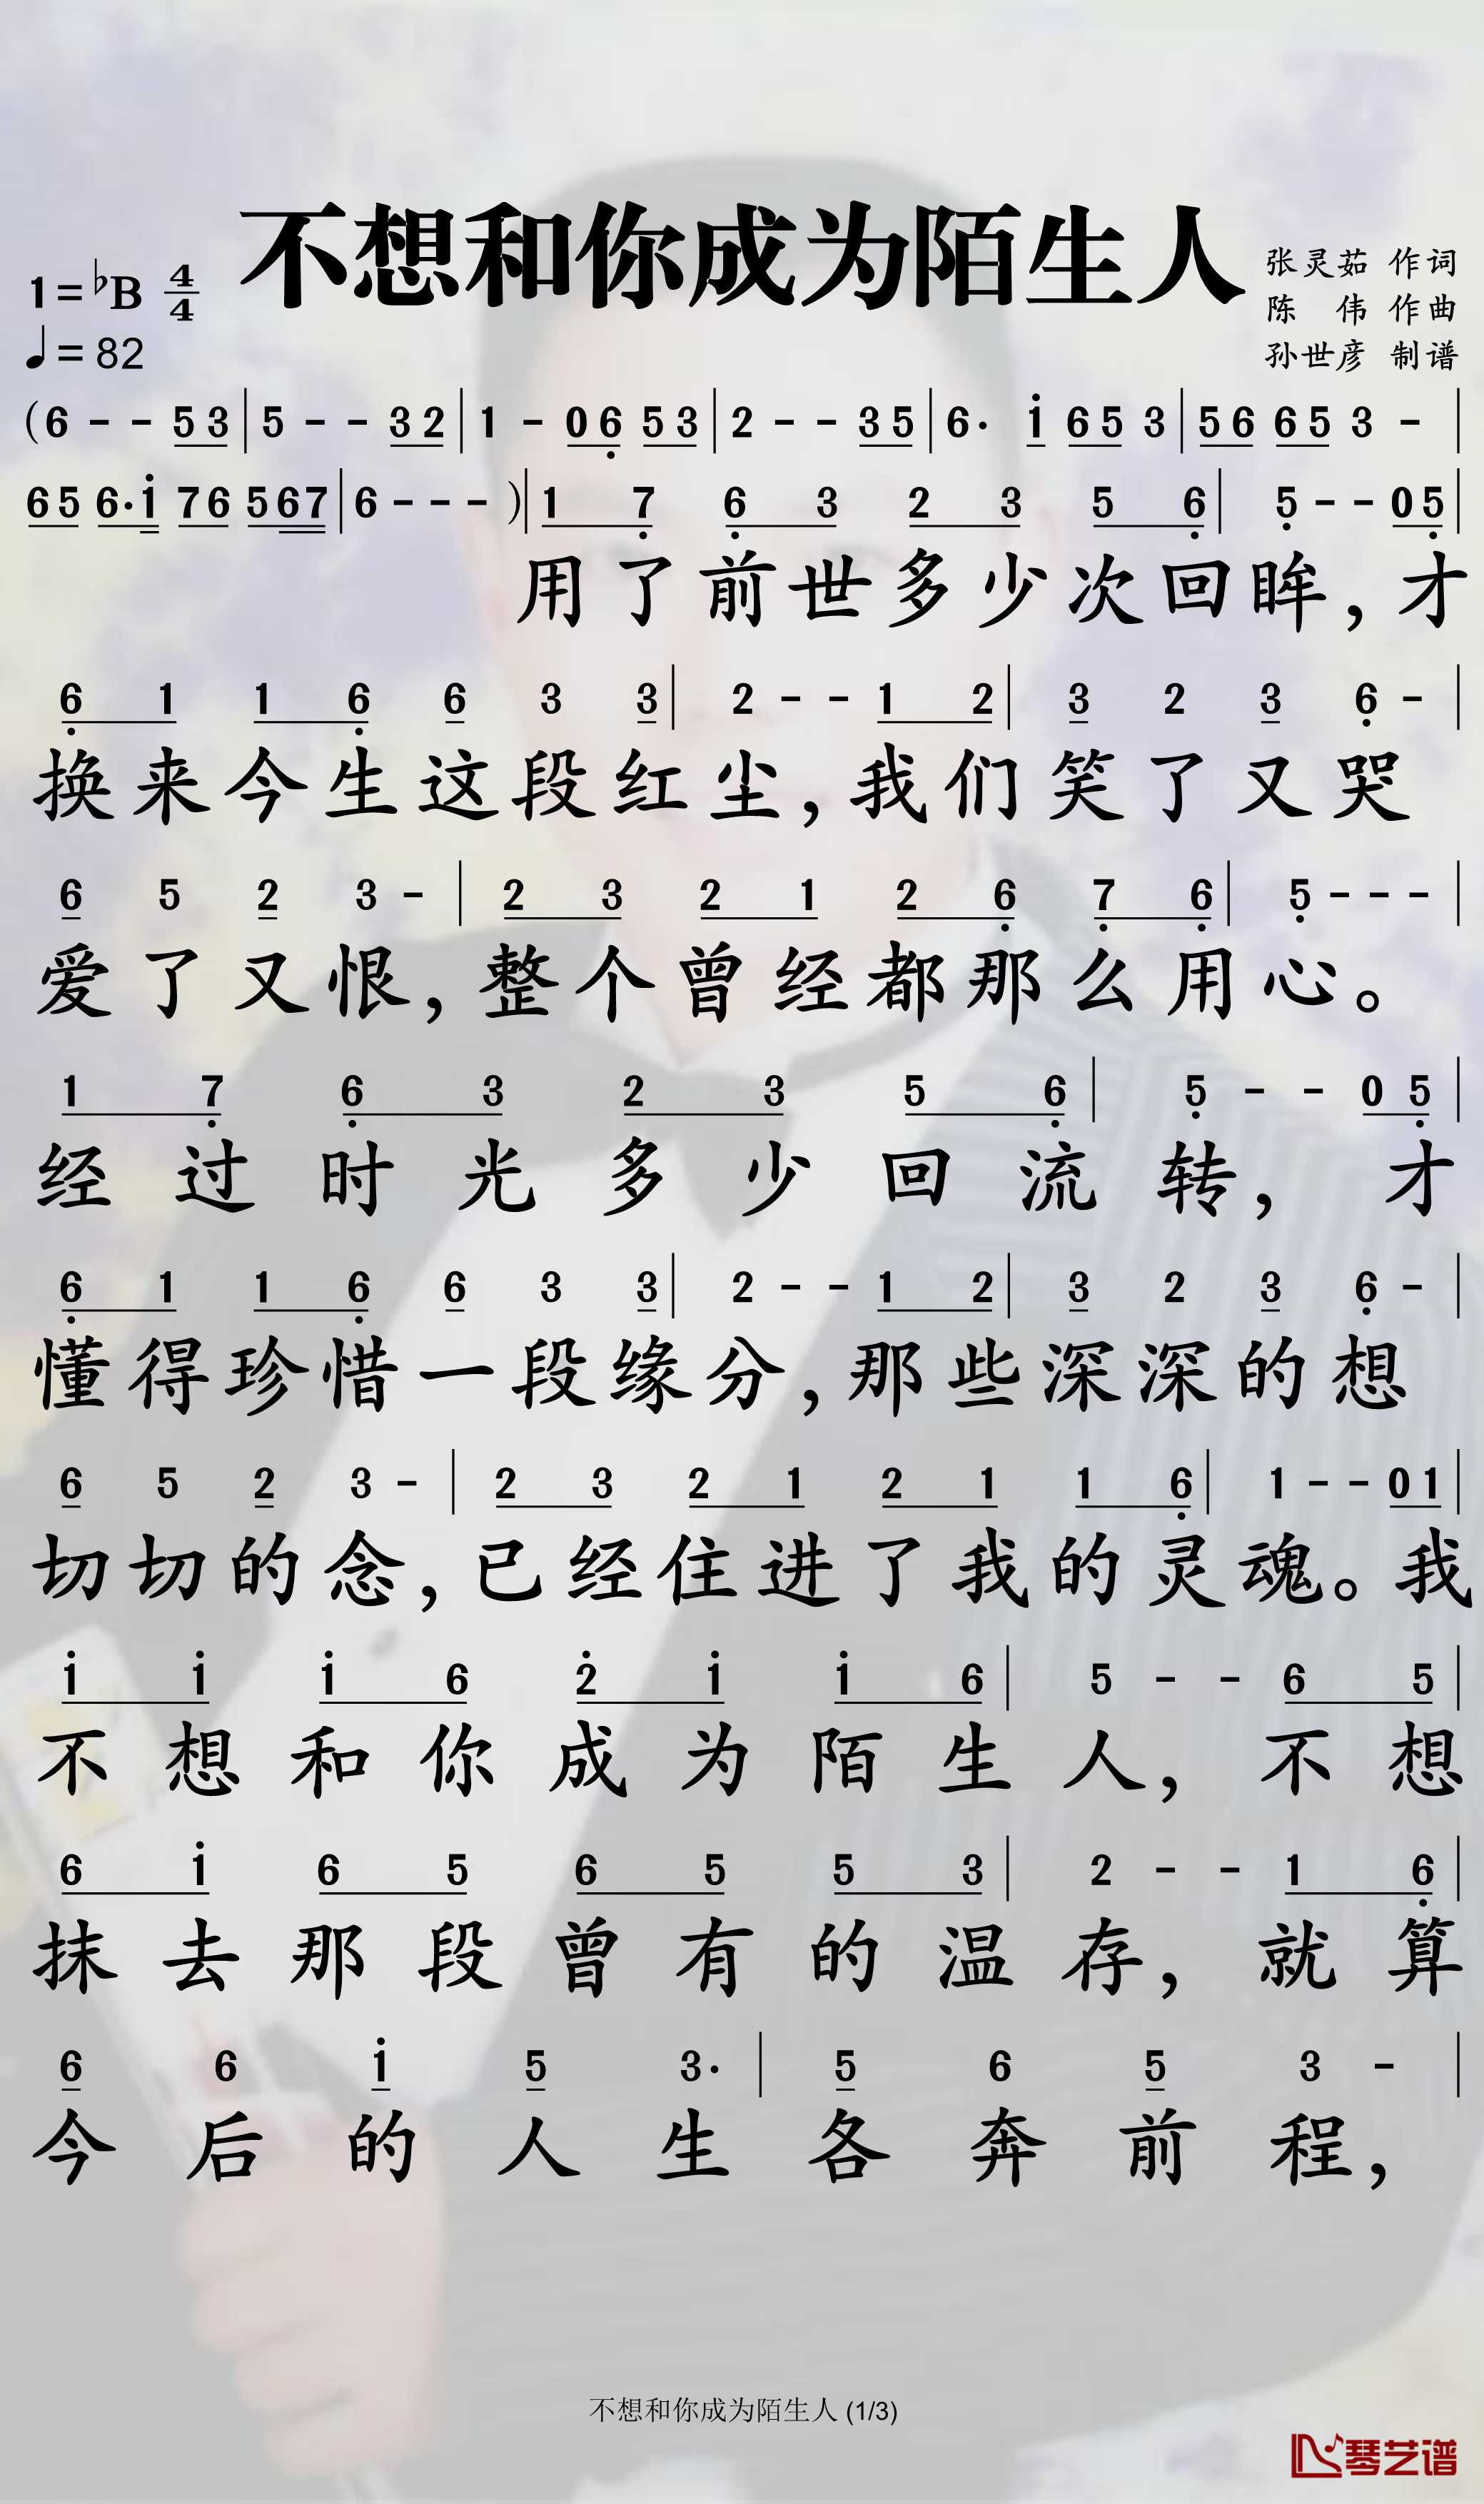 不想和你成为陌生人
1=♭B 4/4
♩=82
张灵茹 作词
陈 伟 作曲
孙世彦 制谱
(6 - - 5 3 | 5 - - 3 2 | 1 - 0 6̣ 5 3 | 2 - - 3 5 | 6· i̇ 6 5 3 | 5 6 6 5 3 - |
6 5 6· i̇ 7 6 5 6 7 | 6 - - - )| 1 7̣ 6̣ 3 2 3 5 6̣ | 5̣ - - 0 5̣ |
用了前世多少次回眸，才
6̣ 1 1 6̣ 6 3 3 | 2 - - 1 2 | 3 2 3 6̣ - |
换来今生这段红尘，我们笑了又哭
6 5 2 3 - | 2 3 2 1 2 6̣ 7̣ 6̣ | 5̣ - - - |
爱了又恨，整个曾经都那么用心。
1 7̣ 6̣ 3 2 3 5 6̣ | 5̣ - - 0 5̣ |
经过时光多少回流转，才
6̣ 1 1 6̣ 6 3 3 | 2 - - 1 2 | 3 2 3 6̣ - |
懂得珍惜一段缘分，那些深深的想
6 5 2 3 - | 2 3 2 1 2 1 1 6̣ | 1 - - 0 1 |
切切的念，已经住进了我的灵魂。我
i̇ i̇ i̇ 6 2̇ i̇ i̇ 6 | 5 - - 6 5 |
不想和你成为陌生人，不想
6 i̇ 6 5 6 5 5 3 | 2 - - 1 6̣ |
抹去那段曾有的温存，就算
6 6 i̇ 5 3· | 5 6 5 3 - |
今后的人生各奔前程，
不想和你成为陌生人 (1/3)
琴艺谱